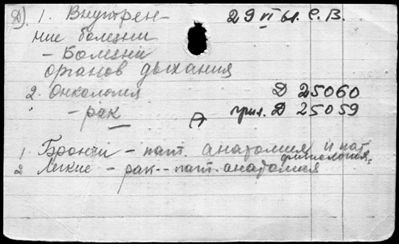 Д). 1. Внутрен- 29 VI 61. С.В.
ние болезни
- Болезни
органов дыхания
2. Онкология Д 25060
" - рак прил. Д 25059
1. Бронхи - пат. анатомия и пат.
физиология.
2 Легкие - рак -- пат. анатомия